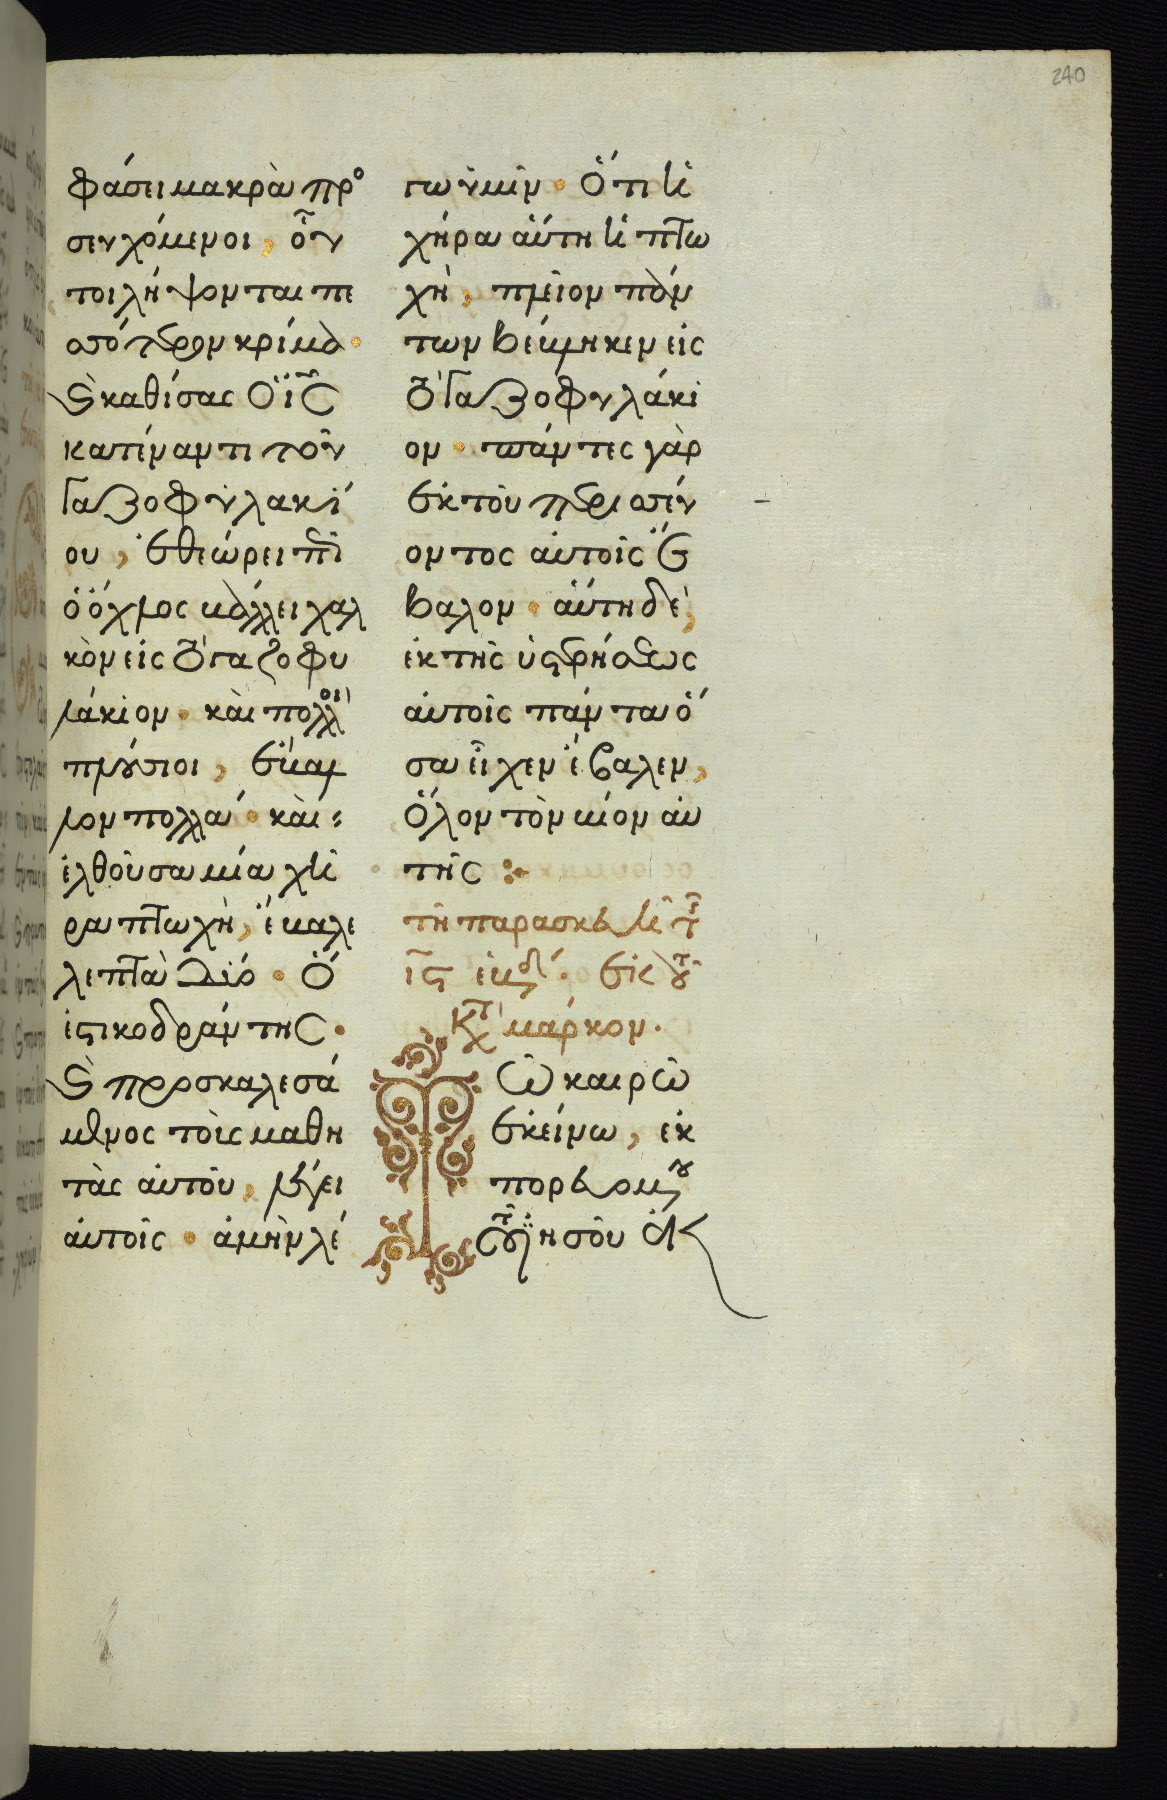 240
φάσει μακρὰ προ
σευχόμενοι, οὗ
τοι λήψονται πε
ρισσότερον κρίμα.
Καὶ καθίσας ὁ ις
κατέναντι τοῦ
γαζοφυλακί
ου, ἐθεώρει πῶς
ὁ ὄχλος βάλλει χαλ
κὸν εἰς τὸ γαζοφυ
λάκιον. καὶ πολλοὶ
πλούσιοι, ἔβαλ
λον πολλά. καὶ
ἐλθοῦσα μία χή
ρα πτωχὴ, ἔβαλε
λεπτὰ δύο. ὅ
ἐστι κοδράντης.
Καὶ προσκαλεσά
μενος τοὺς μαθη
τὰς αὐτοῦ, λέγει
αὐτοῖς. ἀμὴν λέ
γω ὑμῖν. Ὅτι ἡ
χήρα αὕτη ἡ πτω
χὴ, πλεῖον πάν
των βέβληκεν εἰς
τὸ γαζοφυλάκι
ον. πάντες γὰρ
ἐκ τοῦ περισσεύ
οντος αὐτοῖς ἔ
βαλον. αὕτη δὲ,
ἐκ τῆς ὑστερήσεως
αὐτοῖς πάντα ὅ
σα εἶχεν ἔβαλεν,
Ὅλον τὸν βίον αὐ
τῆς
τῇ παρασκευῇ τῆς
ις ἑβδ. ἐκ τοῦ
κατὰ μάρκον.
Τῶ καιρῶ
ἐκείνω, ἐκ
πορευομένου
τοῦ ἰησοῦ ἐκ